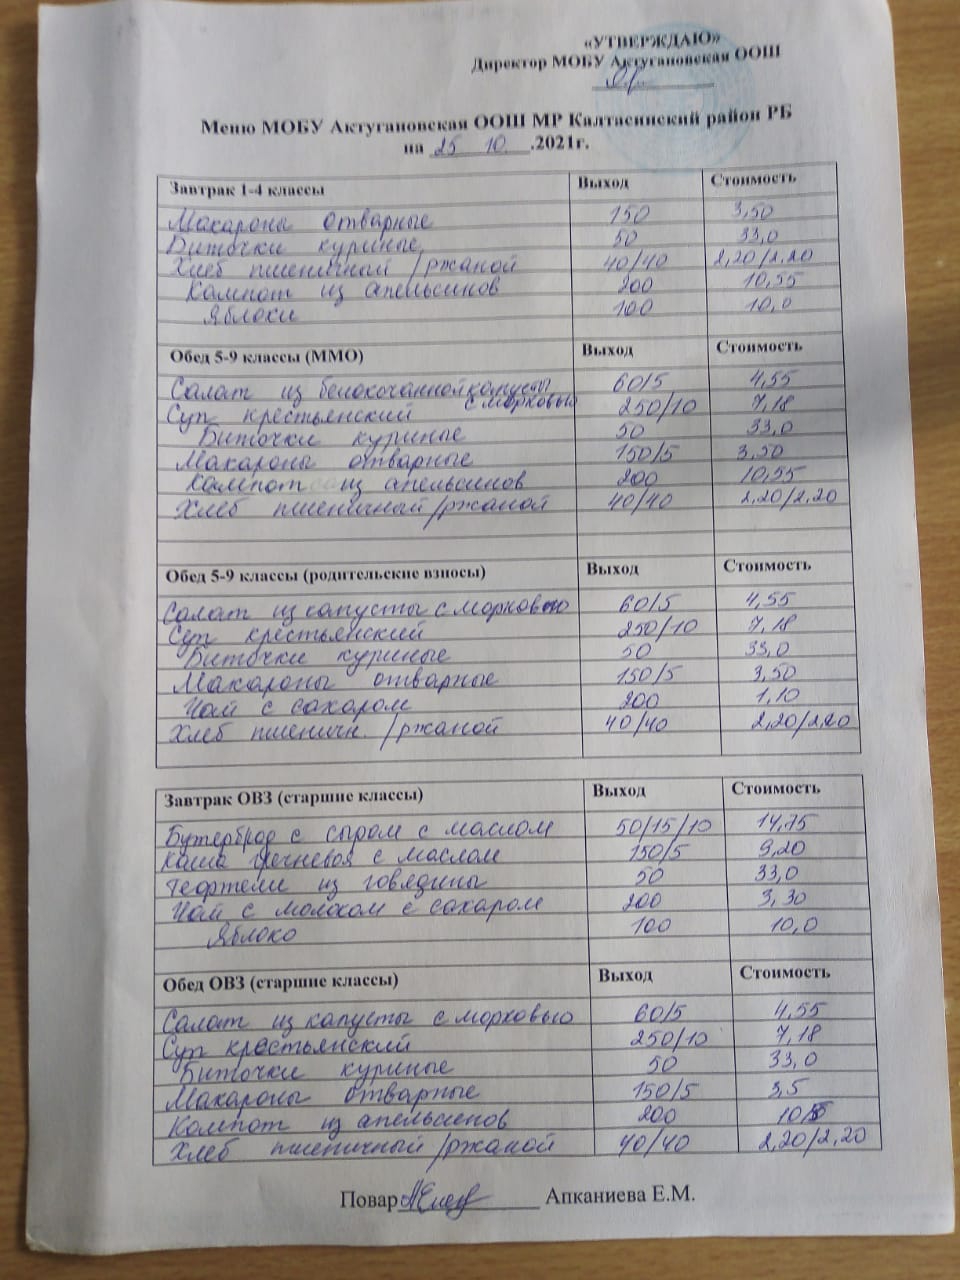 «УТВЕРЖДАЮ»
Директор МОБУ Актугановская ООШ
Меню МОБУ Актугановская ООШ МР Калтасинский район РБ
на 25 10 .2021г.
Завтрак 1-4 классы Выход Стоимость
Макароны отварные 150 3,50
Биточки куриные 50 33,0
Хлеб пшеничный /ржаной 40/40 2,20/2,20
Компот из апельсинов 200 10,55
Яблоки 100 10,0
Обед 5-9 классы (ММО) Выход Стоимость
Салат из белокочанной капусты 60/5 4,55
с морковью
Суп крестьянский 250/10 7,18
Биточки куриные 50 33,0
Макароны отварные 150/5 3,50
Компот из апельсинов 200 10,55
Хлеб пшеничный/ржаной 40/40 2,20/2,20
Обед 5-9 классы (родительские взносы) Выход Стоимость
Салат из капусты с морковью 60/5 4,55
Суп крестьянский 250/10 7,18
Биточки куриные 50 33,0
Макароны отварные 150/5 3,50
Чай с сахаром 200 1,10
Хлеб пшеничн. /ржаной 40/40 2,20/2,20
Завтрак ОВЗ (старшие классы) Выход Стоимость
Бутерброд с сыром с маслом 50/15/10 14,75
Каша гречневая с маслом 150/5 9,20
Тефтели из говядины 50 33,0
Чай с молоком с сахаром 200 3,30
Яблоко 100 10,0
Обед ОВЗ (старшие классы) Выход Стоимость
Салат из капусты с морковью 60/5 4,55
Суп крестьянский 250/10 7,18
Биточки куриные 50 33,0
Макароны отварные 150/5 3,5
Компот из апельсинов 200
Хлеб пшеничный/ржаной 40/40 2,20/2,20
Повар Апканиева Е.М.